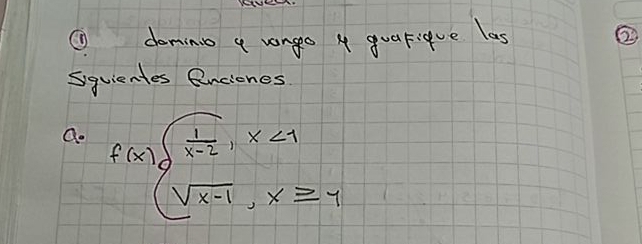 ① dominio y rango y grafique las
siguientes funciones.
a. f(x) { 1/(x-2), x<1
√(x-1), x≥1
②